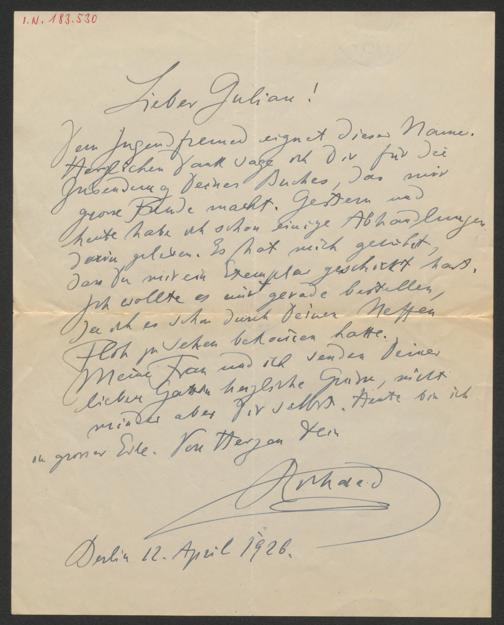 I.N. 183.530
Lieber Julian!
Dem Jugendfreund eignet dieser Name.
Herzlichen Dank sage ich Dir für die
Zusendung Deines Buches, das mir
grosse Freude macht. Gestern und
heute habe ich schon einige Abhandlungen
darin gelesen. Es hat mich gerührt,
dass Du mir ein Exemplar geschickt hast.
Ich wollte es mir gerade bestellen,
da ich es schon durch Deinen Neffen
zu sehen bekommen hatte.
Meine Frau und ich senden Deiner
lieben Gattin herzliche Grüsse, nicht
minder aber Dir selbst. Heute bin ich
in grosser Eile. Von Herzen Dein
Berlin 12. April 1926.